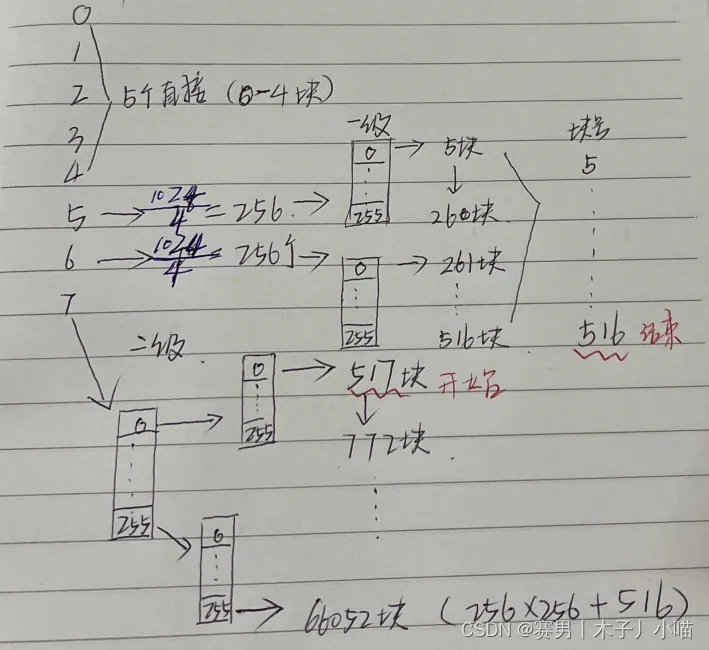 0
1
2 5个直接（0-4块）
3
4
一级
块号
5 → 1024/4 = 256 →
0
255
→ 5块
260块
5
6 → 1024/4 = 256个 →
0
255
→ 261块
516块
516 结束
7
二级
0
255
→
0
255
→ 517块 开始
772块
0
255
→ 66052块 (256×256+516)
CSDN @赛男丨木子丿小喵